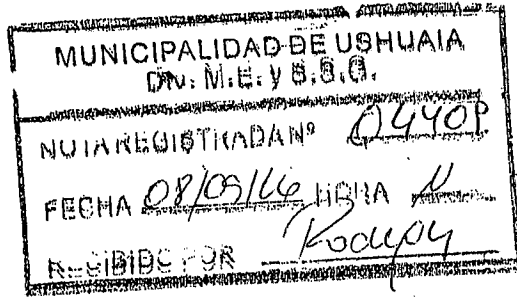 MUNICIPALIDAD DE USHUAIA
DN. M.E. y S.S.G.
NOTA REGISTRADA Nº
FECHA 08/09/16 HORA 11
RECIBIDO POR